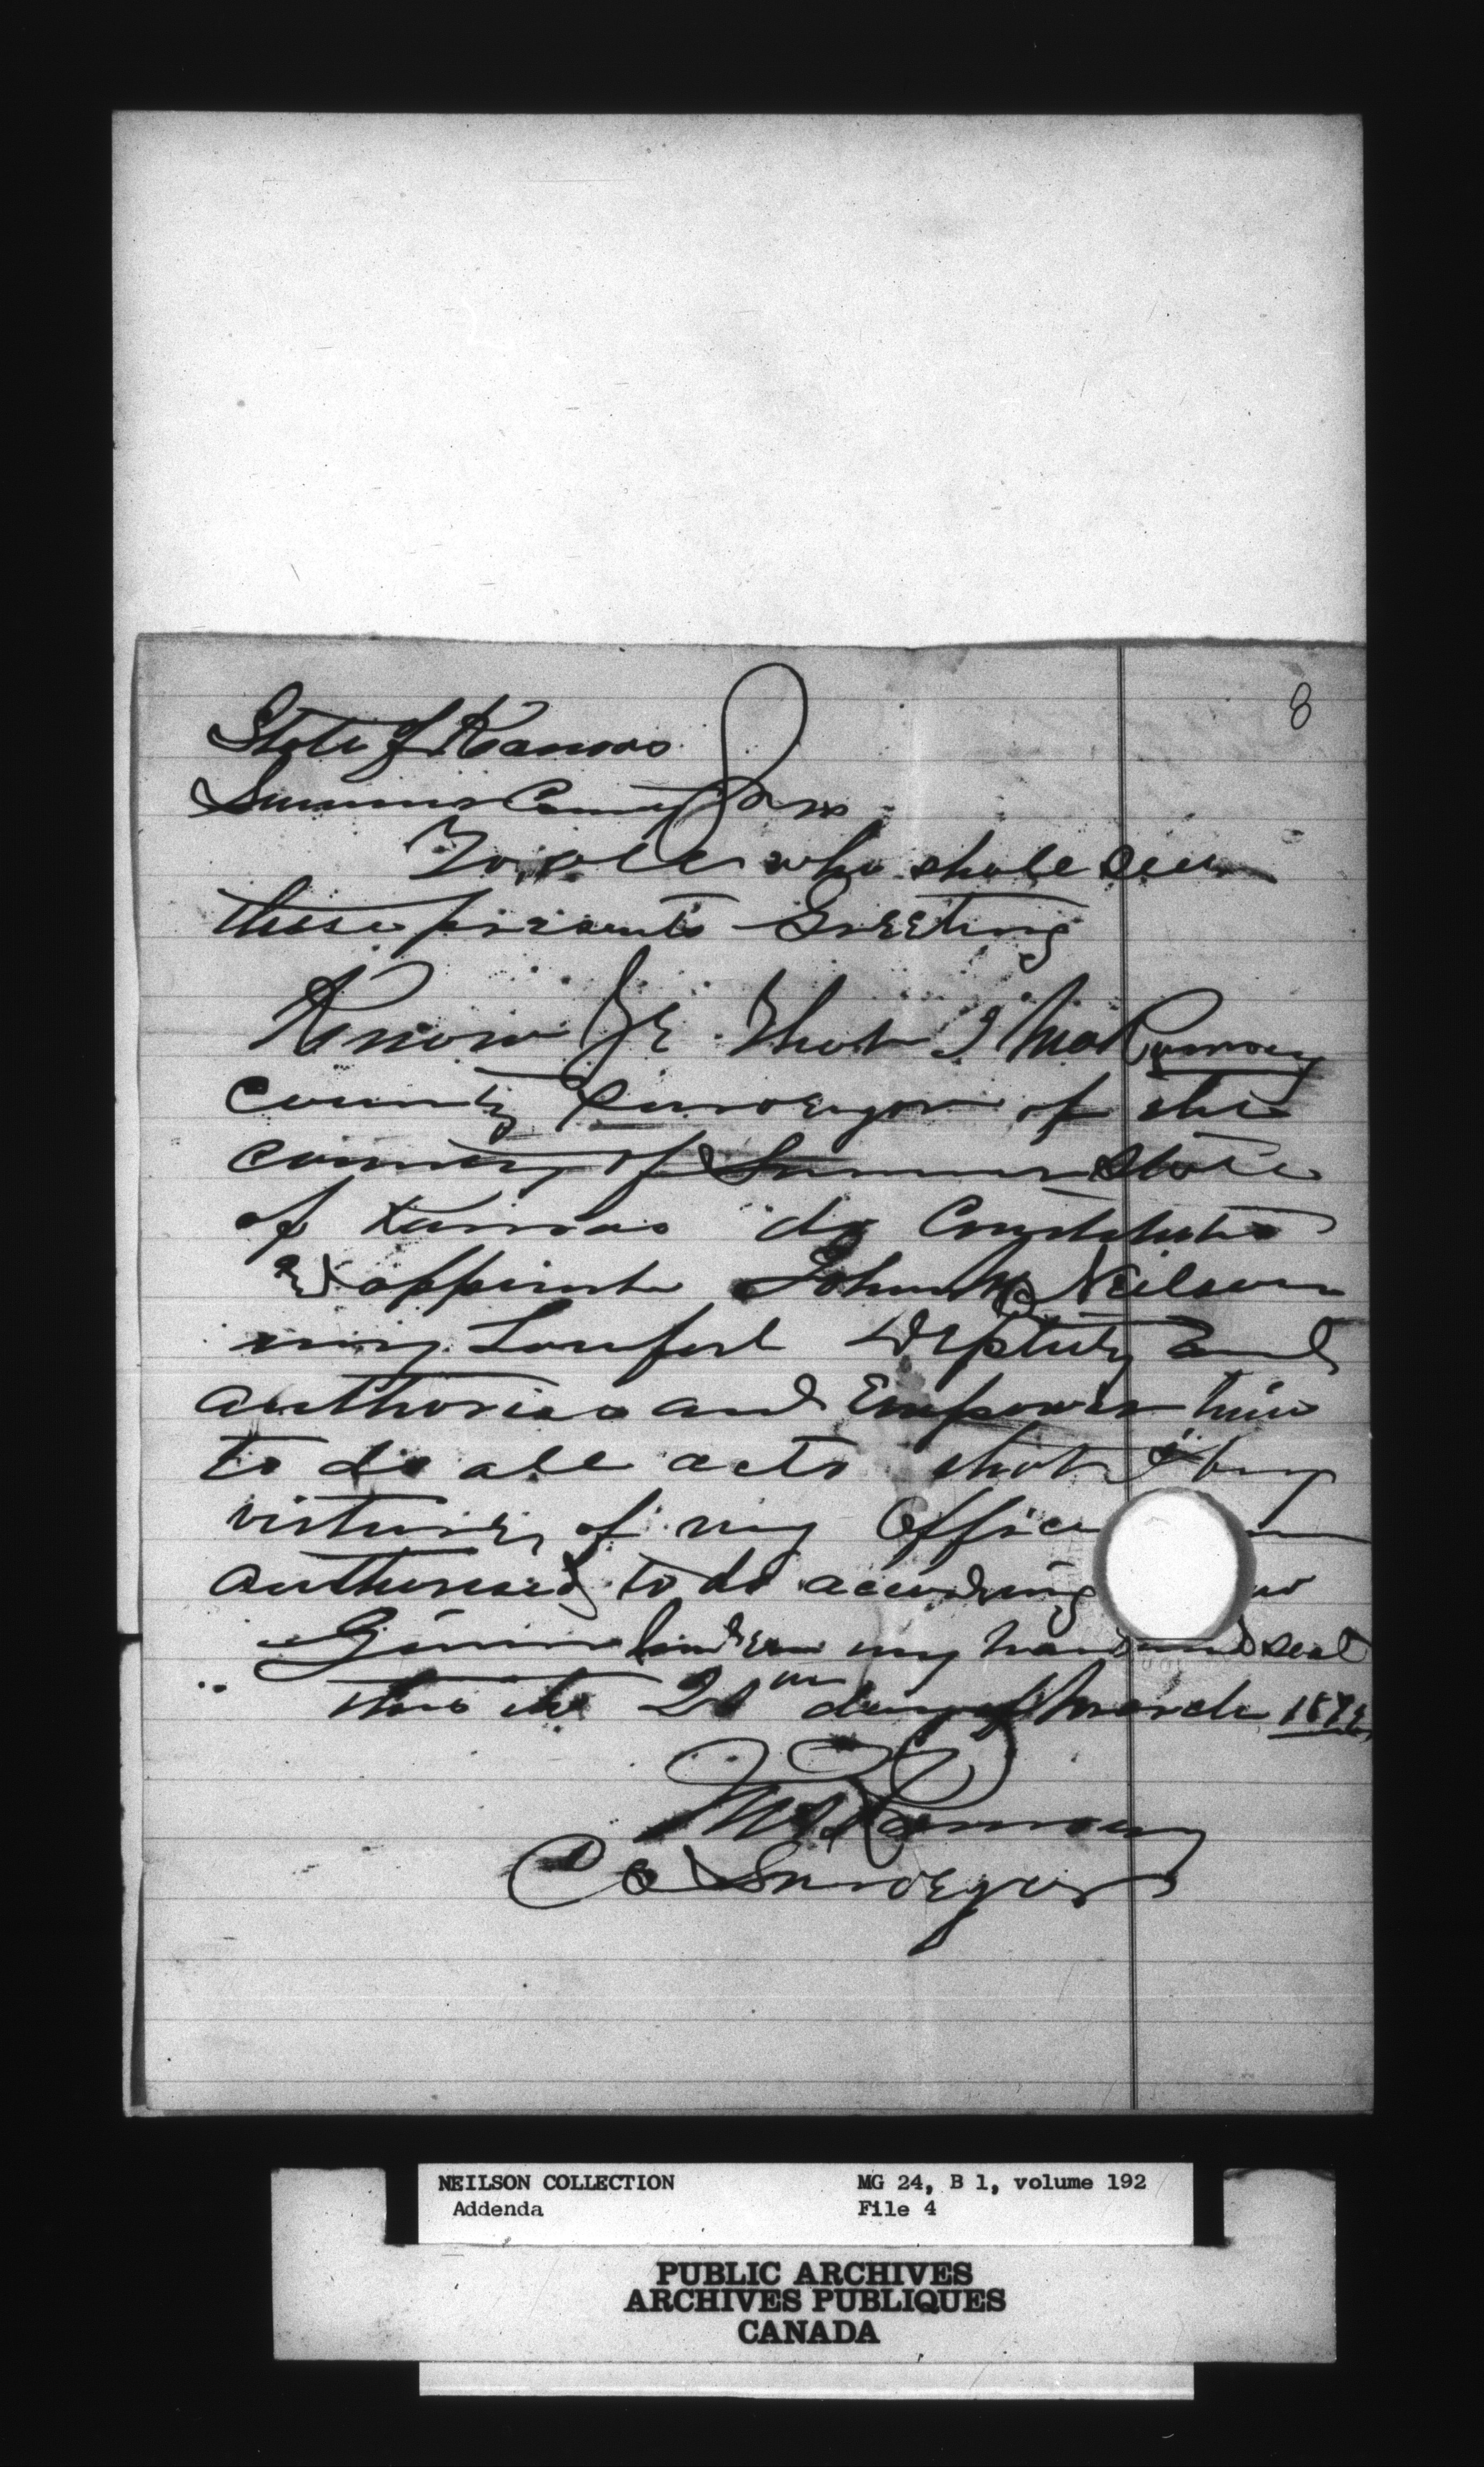 8
State of Kansas
Sumner County } ss
To all who shall see
these presents Greeting
Know Ye That I
County Surveyor of the
County of Sumner State
of Kansas do Constitute
& appoint John Neilson
my Lawful Deputy and
authorise and Empower him
to do all acts that I by
virtue of my Office
authorised to do according
Given under my hand and seal
this the 21 day of March
Co Surveyor
NEILSON COLLECTION MG 24, B 1, volume 192
Addenda File 4
PUBLIC ARCHIVES
ARCHIVES PUBLIQUES
CANADA